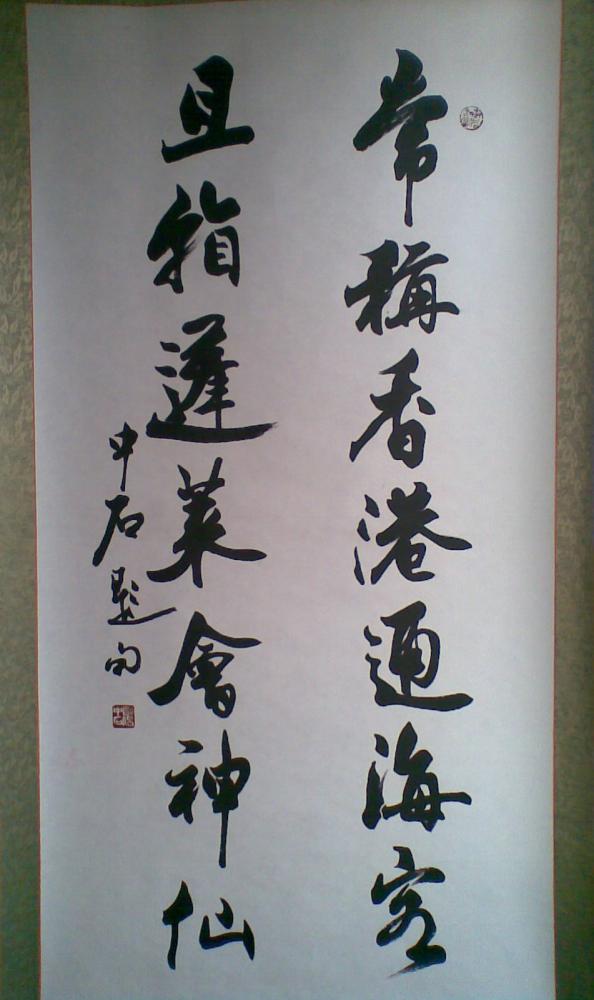 常稱香港通海客
且指蓬萊會神仙
中石題句